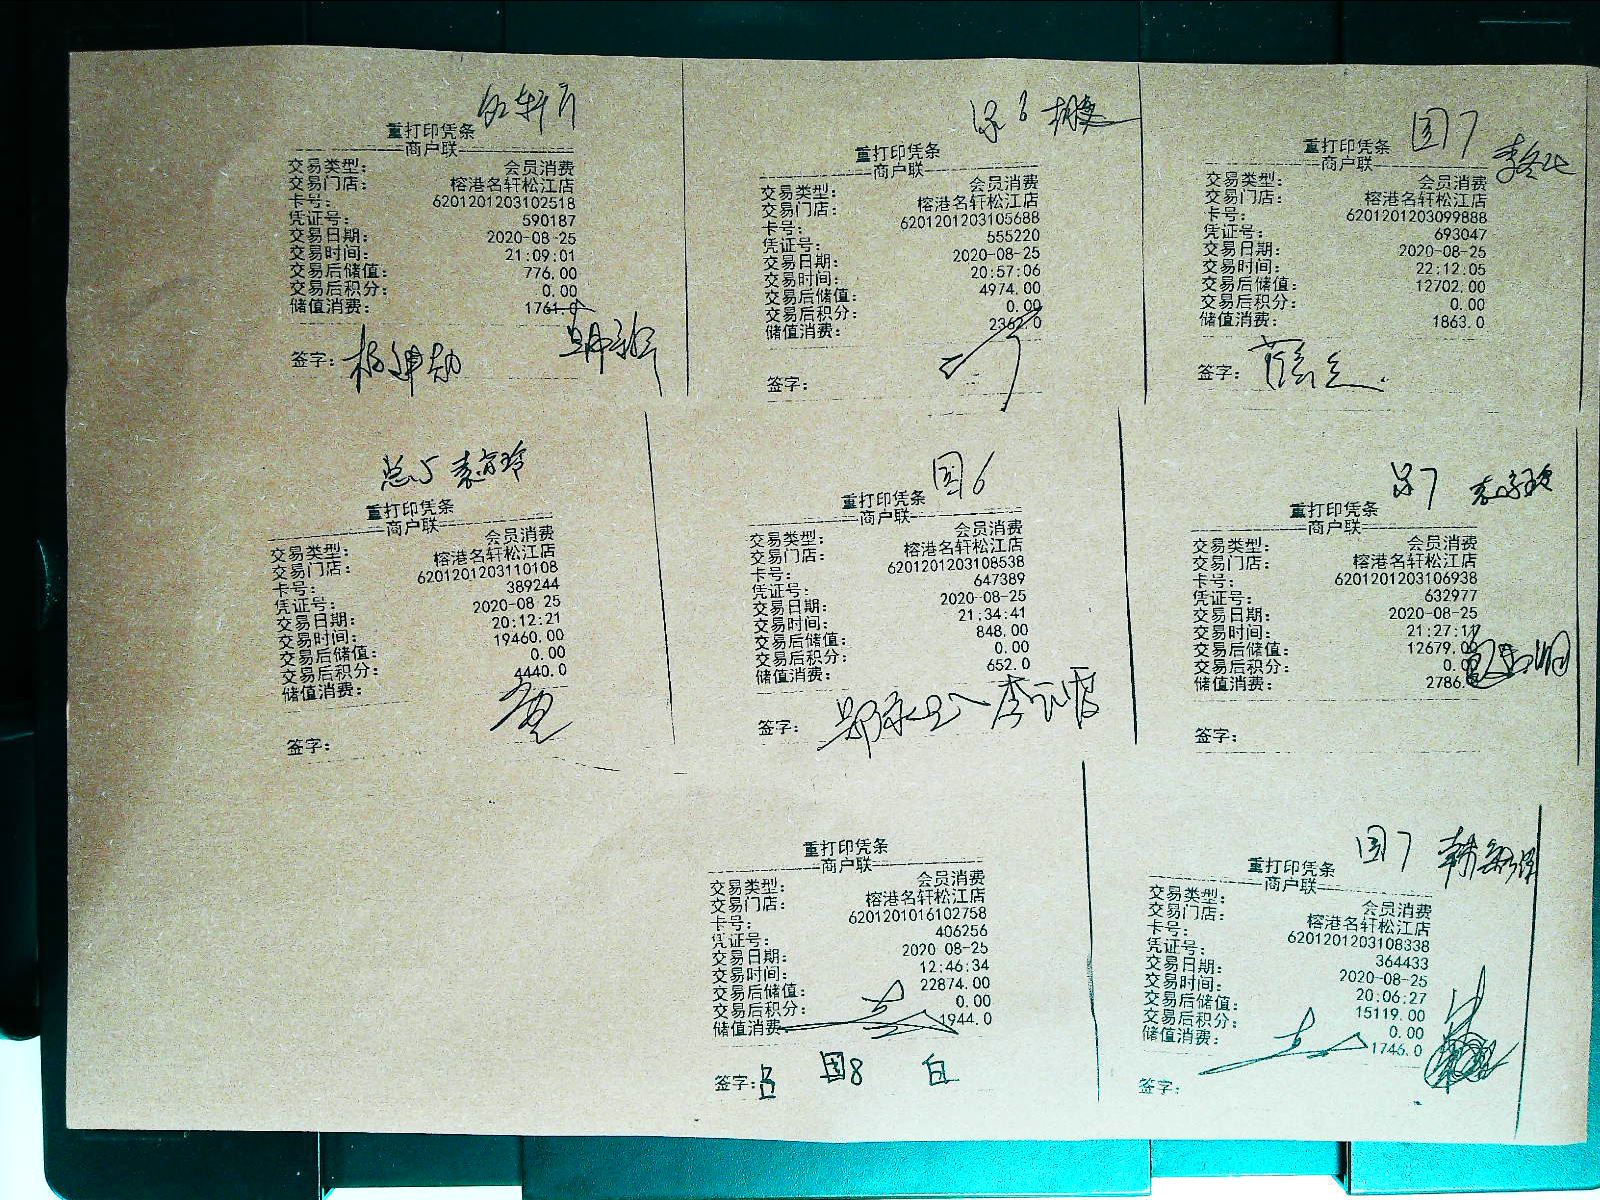 重打印凭条
商户联
交易类型： 会员消费
交易门店： 榕港名轩松江店
卡号： 6201201203102518
凭证号： 590187
交易日期： 2020-08-25
交易时间： 21:09:01
交易后储值： 776.00
交易后积分： 0.00
储值消费： 1761.0
签字：
胡庚
重打印凭条
商户联
交易类型： 会员消费
交易门店： 榕港名轩松江店
卡号： 6201201203105688
凭证号： 555220
交易日期： 2020-08-25
交易时间： 20:57:06
交易后储值： 4974.00
交易后积分： 0.00
储值消费： 2362.0
签字：
国7
重打印凭条
商户联
交易类型： 会员消费
交易门店： 榕港名轩松江店
卡号： 6201201203099888
凭证号： 693047
交易日期： 2020-08-25
交易时间： 22:12:05
交易后储值： 12702.00
交易后积分： 0.00
储值消费： 1863.0
签字：
重打印凭条
商户联
交易类型： 会员消费
交易门店： 榕港名轩松江店
卡号： 6201201203110108
凭证号： 389244
交易日期： 2020-08-25
交易时间： 20:12:21
交易后储值： 19460.00
交易后积分： 0.00
储值消费： 4440.0
签字：
国6
重打印凭条
商户联
交易类型： 会员消费
交易门店： 榕港名轩松江店
卡号： 6201201203108538
凭证号： 647389
交易日期： 2020-08-25
交易时间： 21:34:41
交易后储值： 848.00
交易后积分： 0.00
储值消费： 652.0
签字：
重打印凭条
商户联
交易类型： 会员消费
交易门店： 榕港名轩松江店
卡号： 6201201203106938
凭证号： 632977
交易日期： 2020-08-25
交易时间：
交易后储值： 12679.00
交易后积分： 0.00
储值消费： 2786.0
签字：
重打印凭条
商户联
交易类型： 会员消费
交易门店： 榕港名轩松江店
卡号： 6201201016102758
凭证号： 406256
交易日期： 2020-08-25
交易时间： 12:46:34
交易后储值： 22874.00
交易后积分： 0.00
储值消费： 1944.0
签字： 国8
国7
重打印凭条
商户联
交易类型： 会员消费
交易门店： 榕港名轩松江店
卡号： 6201201203108338
凭证号： 364433
交易日期： 2020-08-25
交易时间： 20:06:27
交易后储值： 15119.00
交易后积分： 0.00
储值消费： 1746.0
签字：